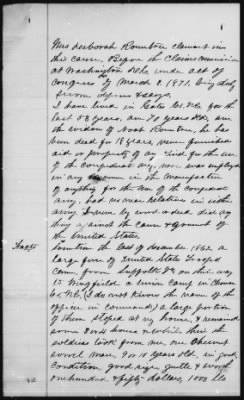 Mrs Deborah Rountree claimant in
the cause, Before the Claims commission
at Washington D.C. under act of
Congress of March 3. 1871, being duly
sworn depose & says.
I have lived in Gates Co. N.C. for the
last 58 years, am 70 years old, am
the widow of Noah Rountree, he has
been dead for 18 years, never furnished
aid or property of any kind for the use
of the Confederacy, never was employed
in any in the manufacture
of anything for the use of the Confederate
army. had no near relatives in either
army & never by word or deed did any
thing against the cause & Government of
the United States.
Sometime the last of december 1862, a
large force of United State Troops
Came from Suffolk Va on their way
to Wingfield a union camp in Chowan
Co. N.C, (I do not know the name of the
officer in command) a large portion of
them stoped at my house, & remained
some hours & while there the
soldiers took from me, one Chesnut
sorrel mare, 9 or 10 years old, in good
condition, good size, gentle & worth
one hundred & fifty dollars, 1000 lbs